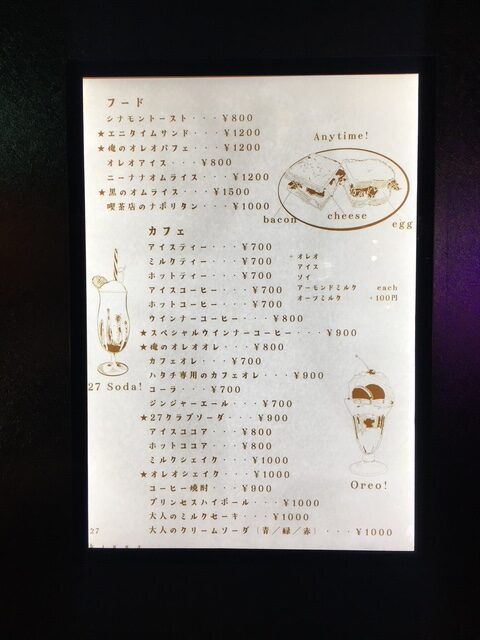 フード
シナモントースト・・・¥800
★エニタイムサンド・・・¥1200
★俺のオレオパフェ・・・¥1200
オレオアイス・・・¥800
ニーナナオムライス・・・¥1200
★黒のオムライス・・・¥1500
喫茶店のナポリタン・・・¥1000
Anytime!
bacon
cheese
egg
カフェ
アイスティー・・・¥700
ミルクティー・・・¥700
ホットティー・・・¥700
アイスコーヒー・・・¥700
ホットコーヒー・・・¥700
ウインナーコーヒー・・・¥800
★スペシャルウインナーコーヒー・・・¥900
★俺のオレオオレ・・・¥800
カフェオレ・・・¥700
ハタチ専用のカフェオレ・・・¥900
コーラ・・・¥700
ジンジャーエール・・・¥700
★27クラブソーダ・・・¥900
アイスココア・・・¥800
ホットココア・・・¥800
ミルクシェイク・・・¥1000
★オレオシェイク・・・¥1000
コーヒー焼酎・・・¥900
プリンセスハイボール・・・¥1000
大人のミルクセーキ・・・¥1000
大人のクリームソーダ(青/緑/赤)・・・¥1000
+オレオ
アイス
ソイ
アーモンドミルク each
オーツミルク +100円
27 Soda!
Oreo!
27